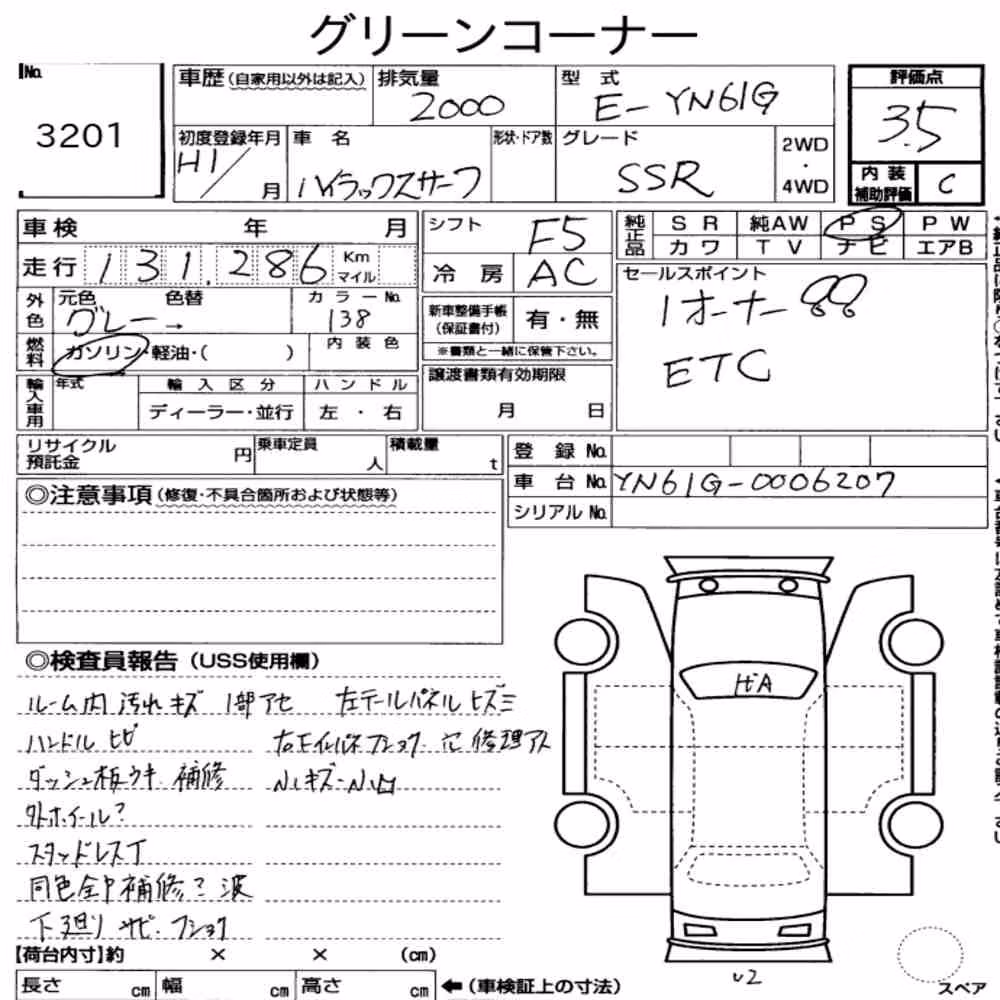 グリーンコーナー
No.
3201
車歴(自家用以外は記入)
排気量
2000
型 式
E-YN61G
評価点
3.5
初度登録年月
H1/
月
車 名
ハイラックスサーフ
形状・ドア数
グレード
SSR
2WD
・
4WD
内装
補助評価
C
車検 年 月
シフト
F5
純正品
SR 純AW PS PW
カワ TV ナビ エアB
走行 131,286 Km マイル
冷 房
AC
セールスポイント
1オーナー
ETC
外色
元色 色替
グレー→
カラーNo.
138
新車整備手帳
(保証書付)
有・無
※書類と一緒に保管下さい。
燃料
ガソリン・軽油・( )
内装色
譲渡書類有効期限
月 日
輸入車用
年式
輸入区分
ハンドル
ディーラー・並行
左・右
リサイクル
預託金
円
乗車定員
人
積載量
t
登 録 No.
車 台 No.
YN61G-0006207
シリアル No.
◎注意事項(修復・不具合箇所および状態等)
◎検査員報告(USS使用欄)
ルーム内 汚れ キズ 1部アセ 左テールパネル ヒズミ
ハンドル ヒビ
穴 修理アト
ダッシュ板ウキ 補修
外ホイール?
スタッドレスT
同色全P補修? 波
下廻り サビ・フショク
ガA
U2
【荷台内寸】約 × × (cm)
長さ cm 幅 cm 高さ cm
←(車検証上の寸法)
スペア